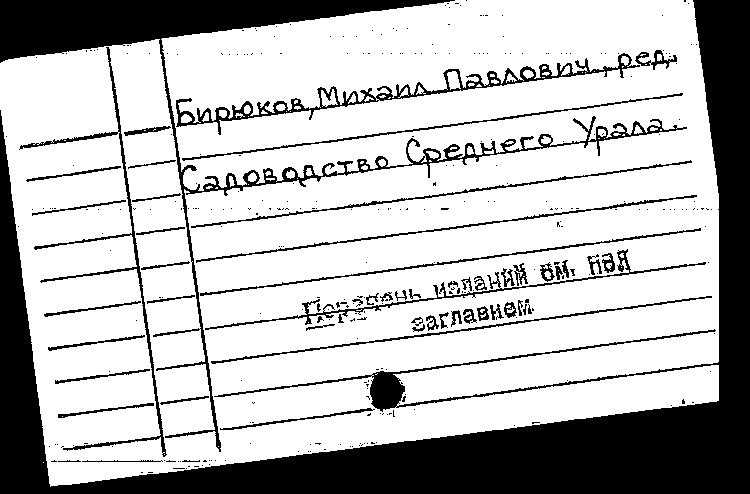 Бирюков, Михаил Павлович, ред.
Садоводство Среднего Урала.
Перечень изданий см. под
заглавием